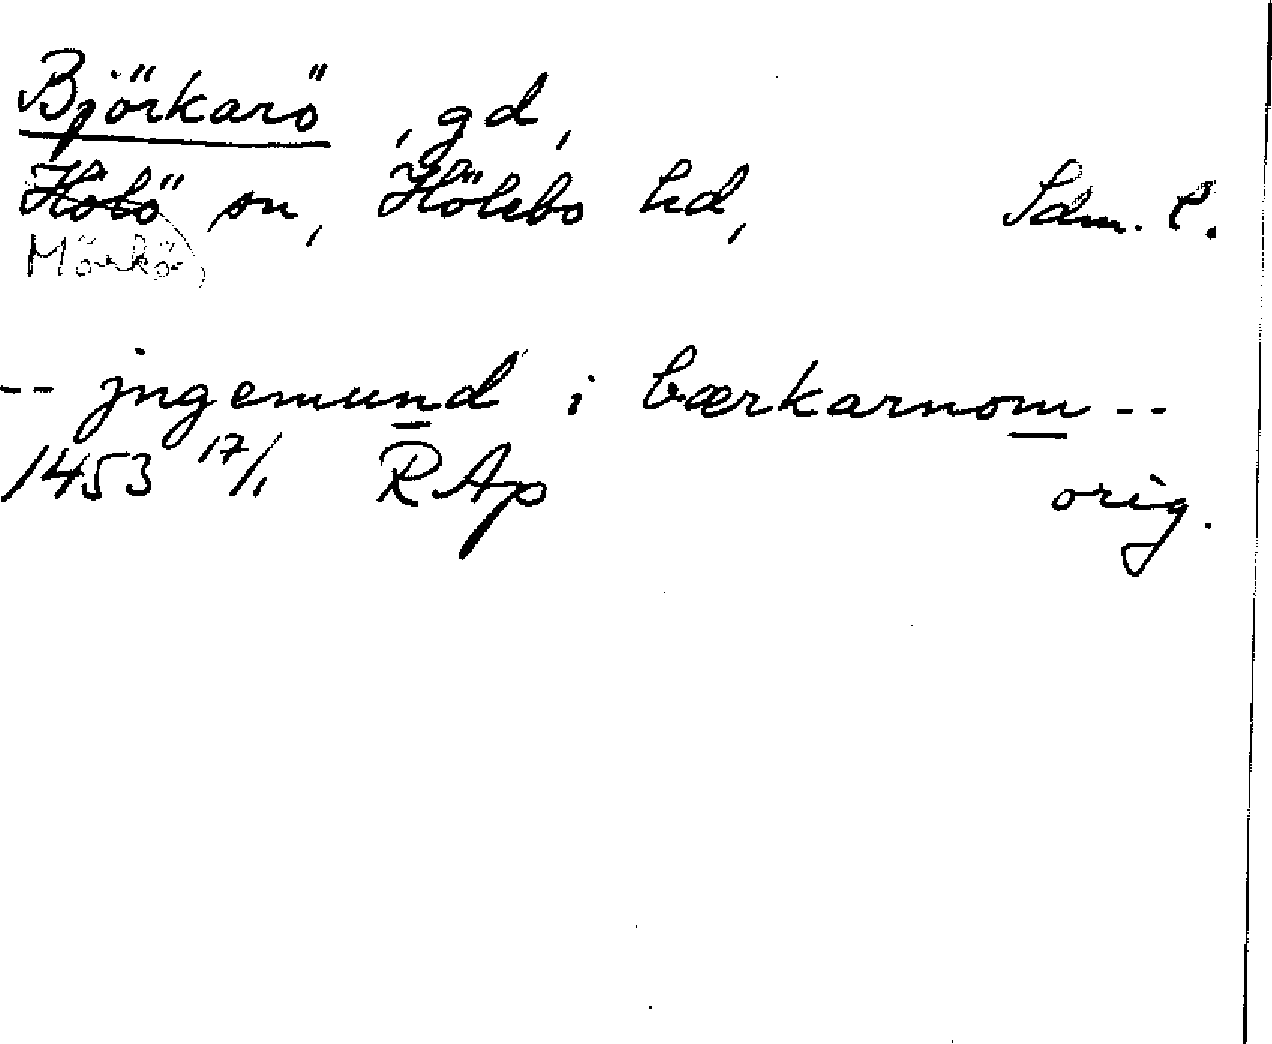 Björkarö, gd,
Hölö sn, Hölebo hd, Sdm. l.
Mörkö
-- jngemund i bærkarnom --
1453 17/1 RAp orig.